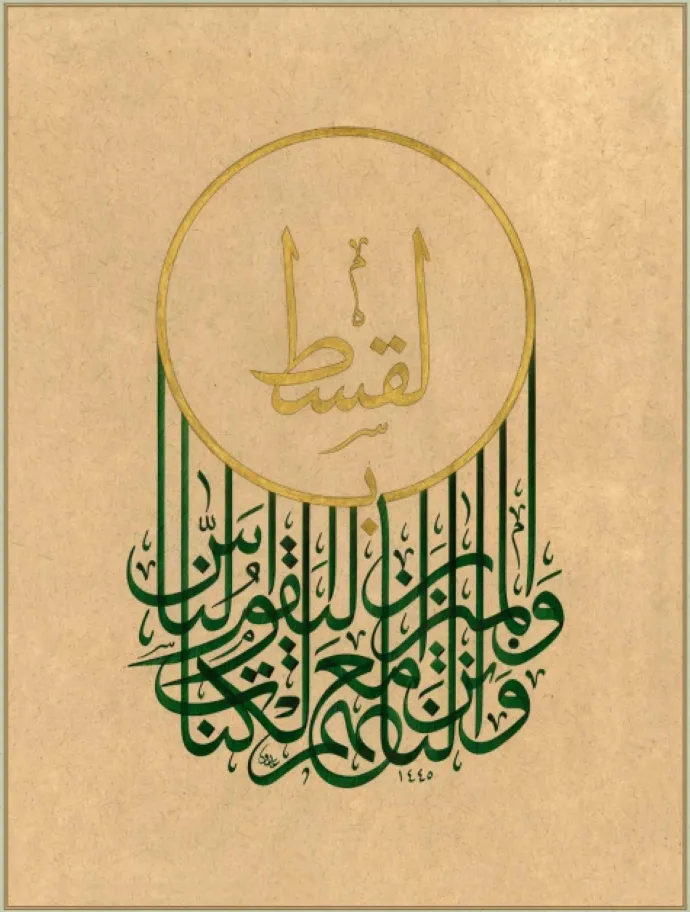 وَأَنزَلنَا مَعَهُمُ الكِتَابَ
وَالمِيزَانَ لِيَقُومَ النَّاسُ
بِالقِسطِ
١٤٤٥